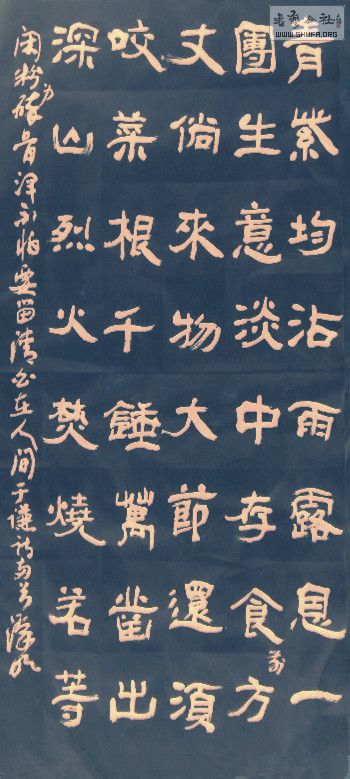 青紫均沾雨露恩一
團生意淡中存食前方
丈倘來物大節還須
咬菜根千錘萬凿出
深山烈火焚燒若等
閑粉身碎骨渾不怕要留清白在人間于謙詩
公社
WWW.SHUFA.ORG